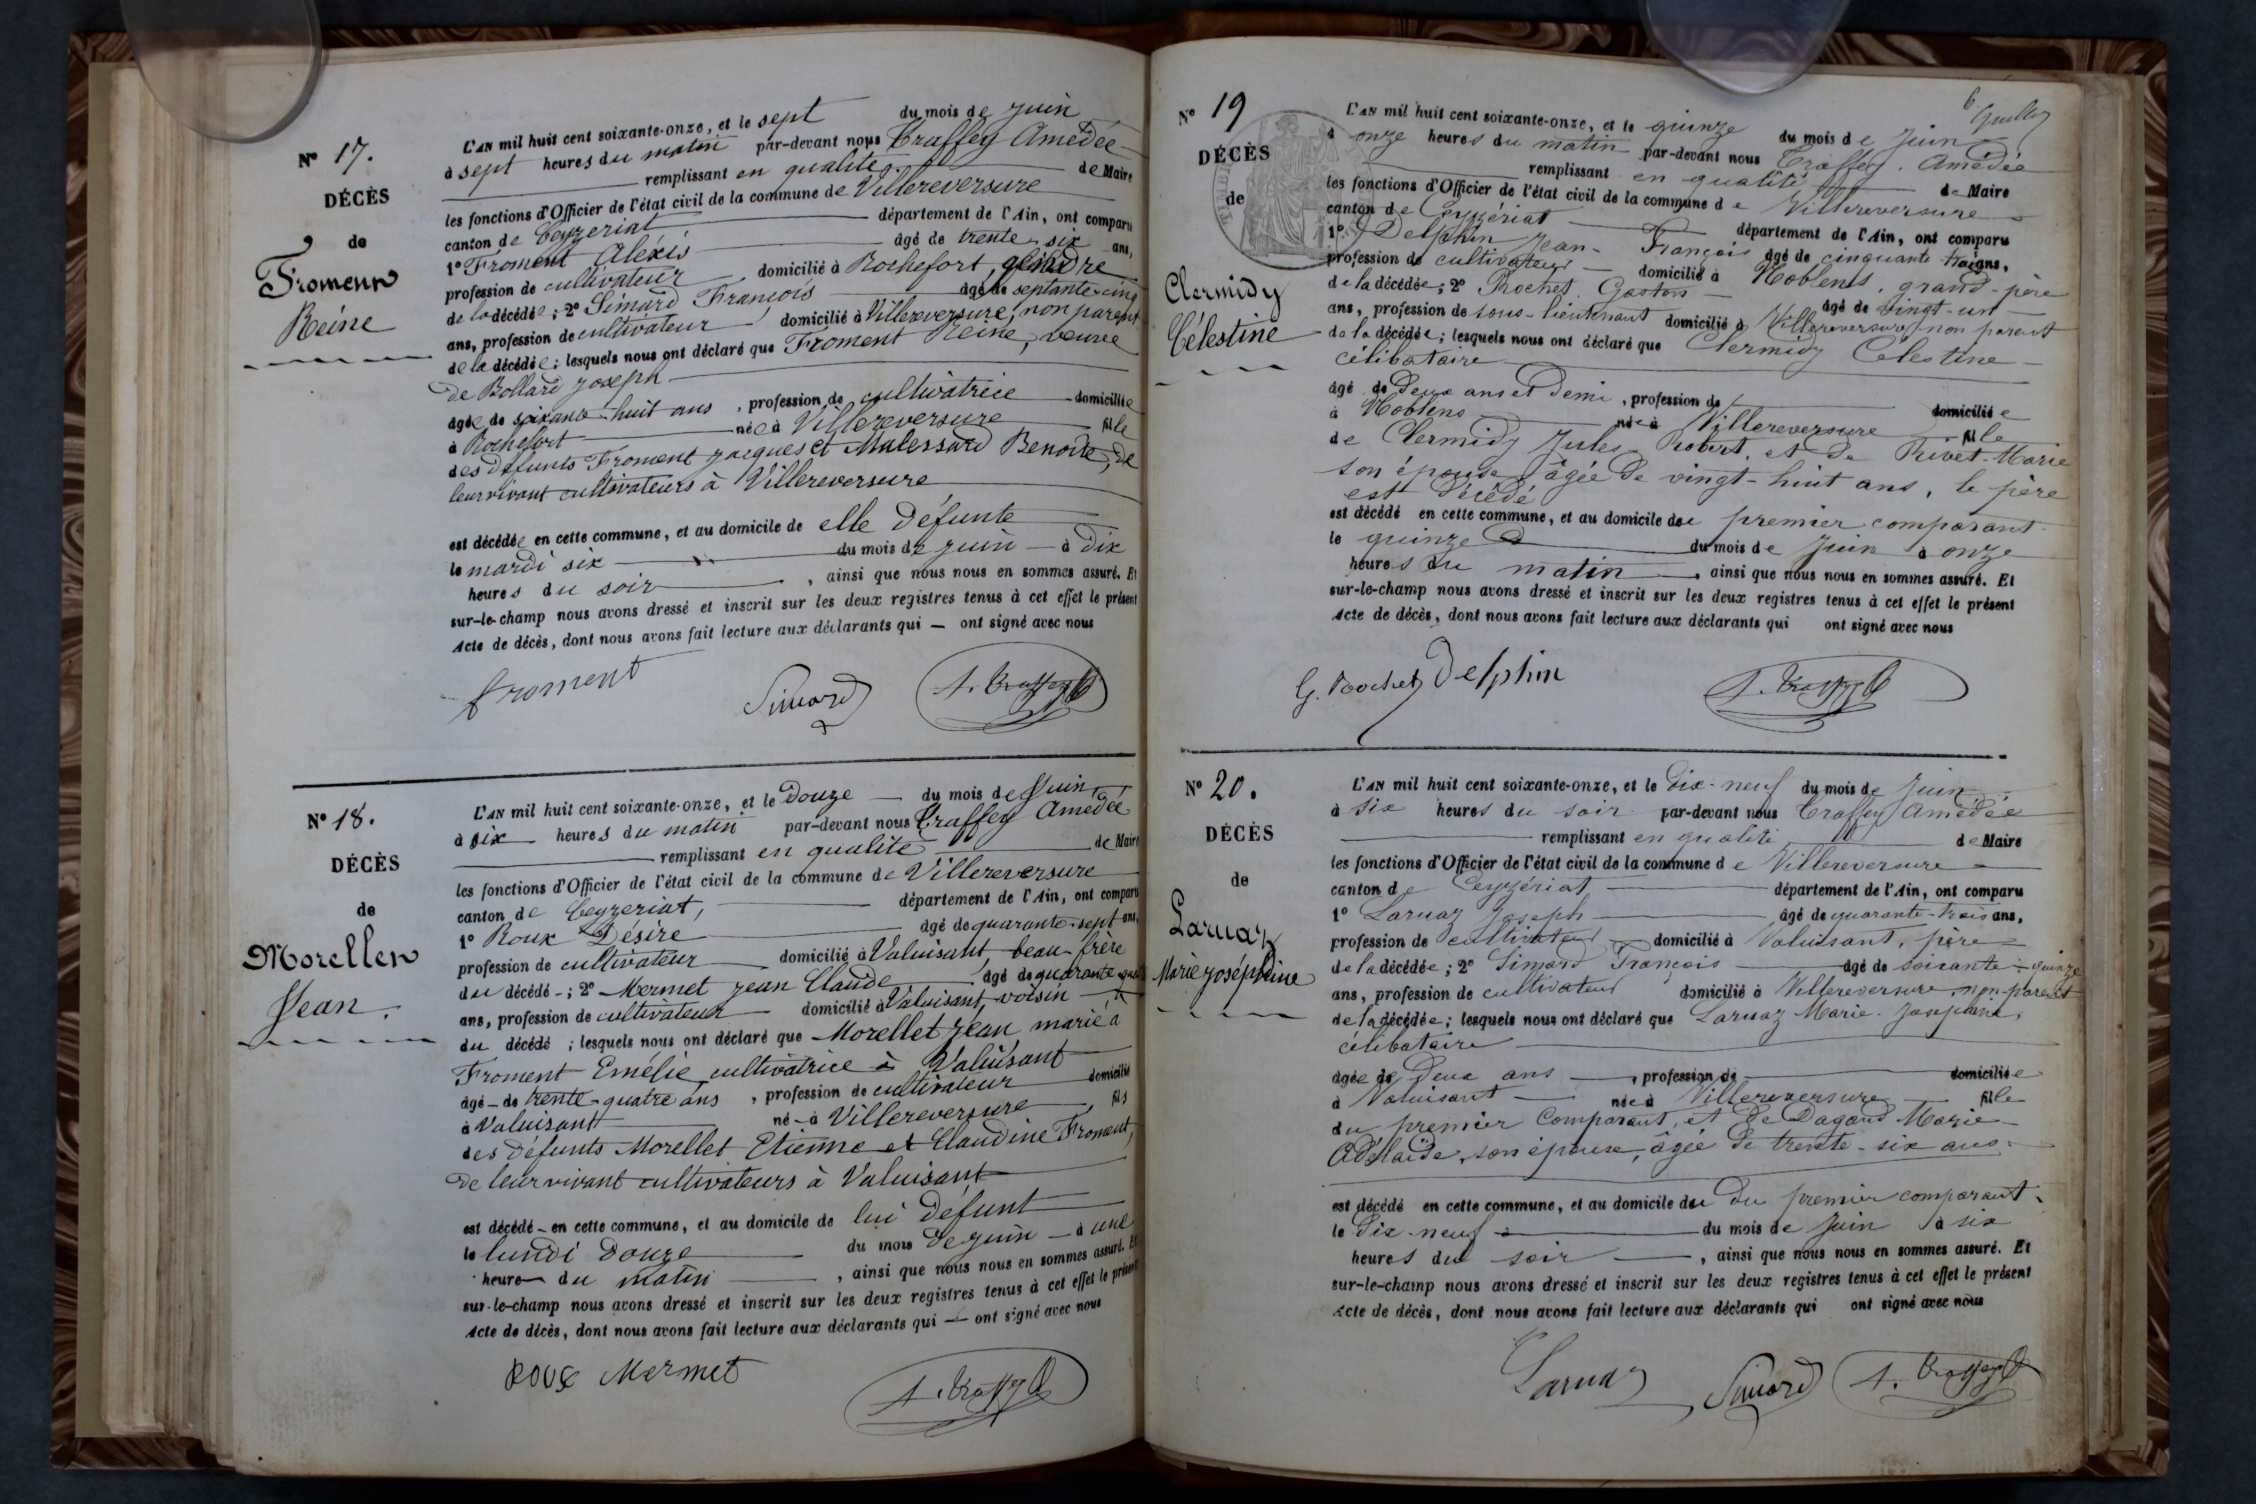 N° 17.
DÉCÈS
de
Froment
Reine
L'AN mil huit cent soixante-onze, et le sept du mois de Juin
à sept heures du matin par-devant nous Traffey Amédée
remplissant en qualité de Maire
les fonctions d'Officier de l'état civil de la commune de Villereversure
canton de Ceyzeriat département de l'Ain, ont comparu
1° Froment Alexis âgé de trente-six ans,
profession de cultivateur domicilié à Rochefort, gendre
de la décédée; 2° Simard François âgé de septante-cinq
ans, profession de cultivateur domicilié à Villereversure, non parent
de la décédée; lesquels nous ont déclaré que Froment Reine, veuve
de Bollard Joseph
agée de soixante-huit ans, profession de cultivatrice domiciliée
à Rochefort née à Villereversure fille
des défunts Froment Jacques et Malessard Benoite, de
leur vivant cultivateurs à Villereversure
est décédée en cette commune, et au domicile de elle défunte
le mardi six du mois de juin à dix
heures du soir, ainsi que nous nous en sommes assuré. Et
sur-le-champ nous avons dressé et inscrit sur les deux registres tenus à cet effet le présent
Acte de décès, dont nous avons fait lecture aux déclarants qui — ont signé avec nous
froment Simard A. Traffey
N° 18.
DÉCÈS
de
Morellet
Jean.
L'AN mil huit cent soixante-onze, et le Douze du mois de Juin
à six heures du matin par-devant nous Traffey Amédée
remplissant en qualité de Maire
les fonctions d'Officier de l'état civil de la commune de Villereversure
canton de Ceyzeriat, département de l'Ain, ont comparu
1° Roux Désiré âgé de quarante-sept ans,
profession de cultivateur domicilié à Valuisant, beau-frère
du décédé; 2° Mermet Jean Claude âgé de quarante
ans, profession de cultivateur domicilié à Valuisant, voisin
du décédé; lesquels nous ont déclaré que Morellet Jean marié à
Froment Emélie cultivatrice à Valuisant
âgé de trente-quatre ans, profession de cultivateur domicilié
à Valuisant né à Villereversure fils
des défunts Morellet Etienne et Claudine Froment,
de leur vivant cultivateurs à Valuisant
est décédé en cette commune, et au domicile de lui défunt
le lundi douze du mois de juin à une
heure du matin, ainsi que nous nous en sommes assuré. Et
sur-le-champ nous avons dressé et inscrit sur les deux registres tenus à cet effet le présent
Acte de décès, dont nous avons fait lecture aux déclarants qui — ont signé avec nous
ROUX Mermet A. Traffey
6.
N° 19
DÉCÈS
de
Clermidy
Célestine
L'AN mil huit cent soixante-onze, et le quinze du mois de Juin
à onze heures du matin par-devant nous Traffey Amédée
remplissant en qualité de Maire
les fonctions d'Officier de l'état civil de la commune de Villereversure
canton de Ceyzériat département de l'Ain, ont comparu
1° Delphin Jean-François âgé de cinquante trois ans,
profession de cultivateur domicilié à Noblens, grand-père
de la décédée; 2° Rochet Gaston âgé de vingt-un
ans, profession de sous-lieutenant domicilié à Villereversure non parent
de la décédée; lesquels nous ont déclaré que Clermidy Célestine
célibataire
âgé de Deux ans et demi, profession de domiciliée
à Noblens née à Villereversure fille
de Clermidy Jules Robert, et de Privet Marie
son épouse âgée de vingt-huit ans, le père
est décédé
est décédé en cette commune, et au domicile du premier comparant
le quinze du mois de Juin à onze
heures du matin, ainsi que nous nous en sommes assuré. Et
sur-le-champ nous avons dressé et inscrit sur les deux registres tenus à cet effet le présent
Acte de décès, dont nous avons fait lecture aux déclarants qui ont signé avec nous
G. Rochet Delphin A. Traffey
N° 20.
DÉCÈS
de
Laruaz
Marie Joséphine
L'AN mil huit cent soixante-onze, et le Dix-neuf du mois de Juin
à six heures du soir par-devant nous Traffey Amédée
remplissant en qualité de Maire
les fonctions d'Officier de l'état civil de la commune de Villereversure
canton de Ceyzériat département de l'Ain, ont comparu
1° Laruaz Joseph âgé de quarante-trois ans,
profession de cultivateur domicilié à Valuisant, père
de la décédée; 2° Simard François âgé de soixante-quinze
ans, profession de cultivateur domicilié à Villereversure, non-parent
de la décédée; lesquels nous ont déclaré que Laruaz Marie-Joséphine,
célibataire
âgée de Deux ans, profession de domiciliée
à Valuisant née à Villereversure fille
du premier comparant, et de Dagand Marie
Adélaïde, son épouse, âgée de trente-six ans
est décédé en cette commune, et au domicile du du premier comparant
le Dix-neuf du mois de Juin à six
heures du soir, ainsi que nous nous en sommes assuré. Et
sur-le-champ nous avons dressé et inscrit sur les deux registres tenus à cet effet le présent
Acte de décès, dont nous avons fait lecture aux déclarants qui ont signé avec nous
Laruaz Simard A. Traffey